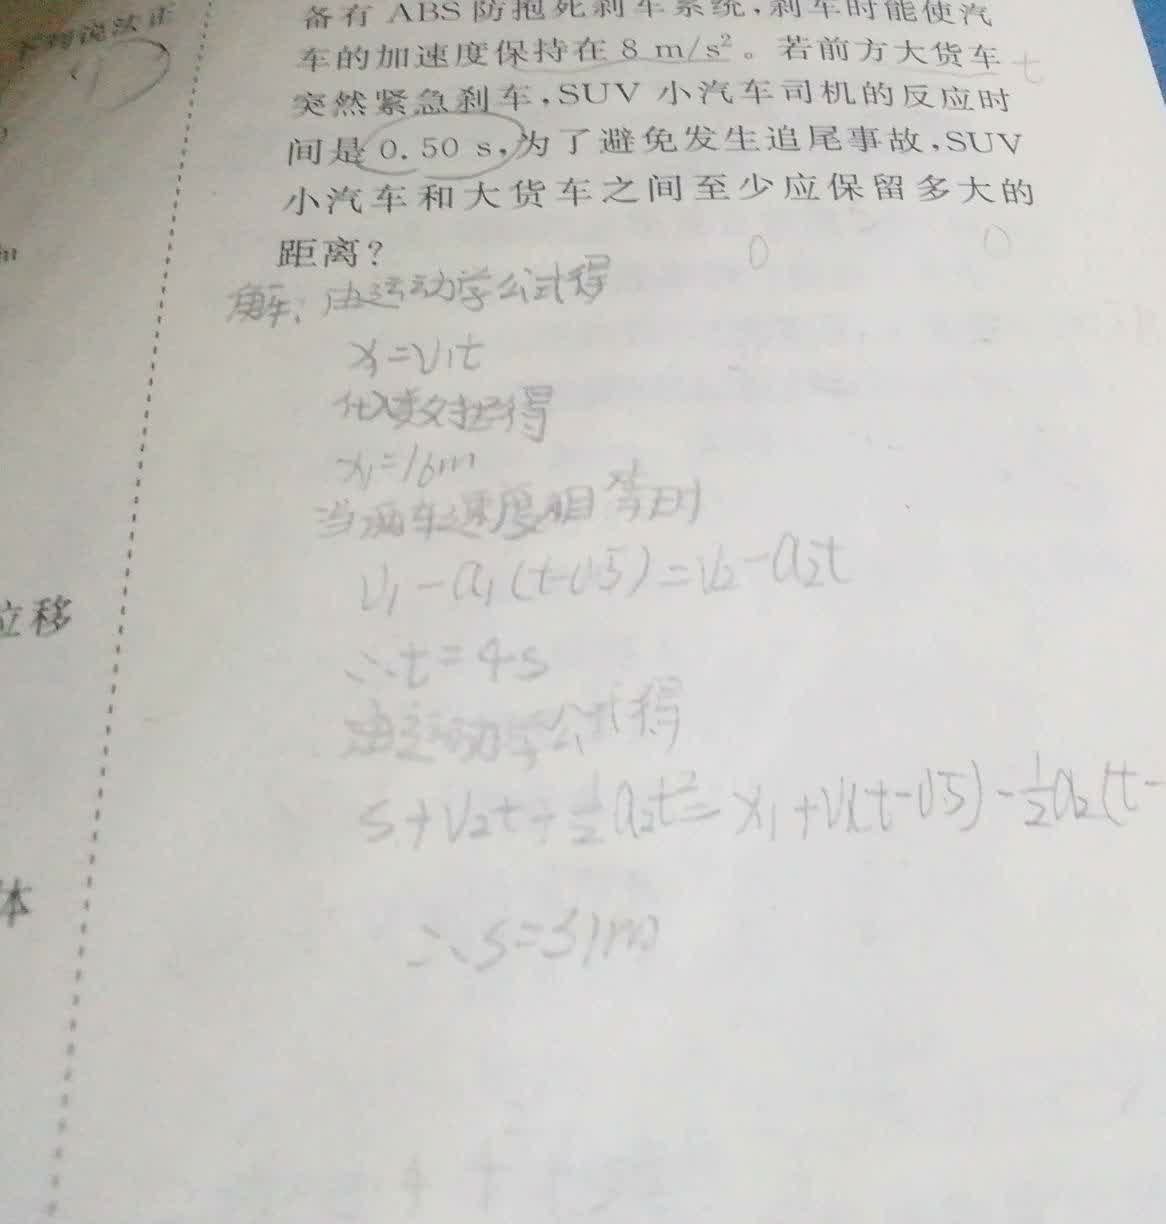 下列说法正
备有 ABS 防抱死刹车系统,刹车时能使汽
车的加速度保持在 8 m/s²。若前方大货车
突然紧急刹车,SUV 小汽车司机的反应时
间是 0.50 s,为了避免发生追尾事故,SUV
小汽车和大货车之间至少应保留多大的
距离?
解:由运动学公式得
x₁=v₁t
代入数据得
x₁=16m
当两车速度相等时
v₁-a₁(t-0.5)=v₂-a₂t
∴t=4s
由运动学公式得
s+v₂t+½a₂t²=x₁+v₁(t-0.5)-½a₂(t-
∴s=31m
位移
体